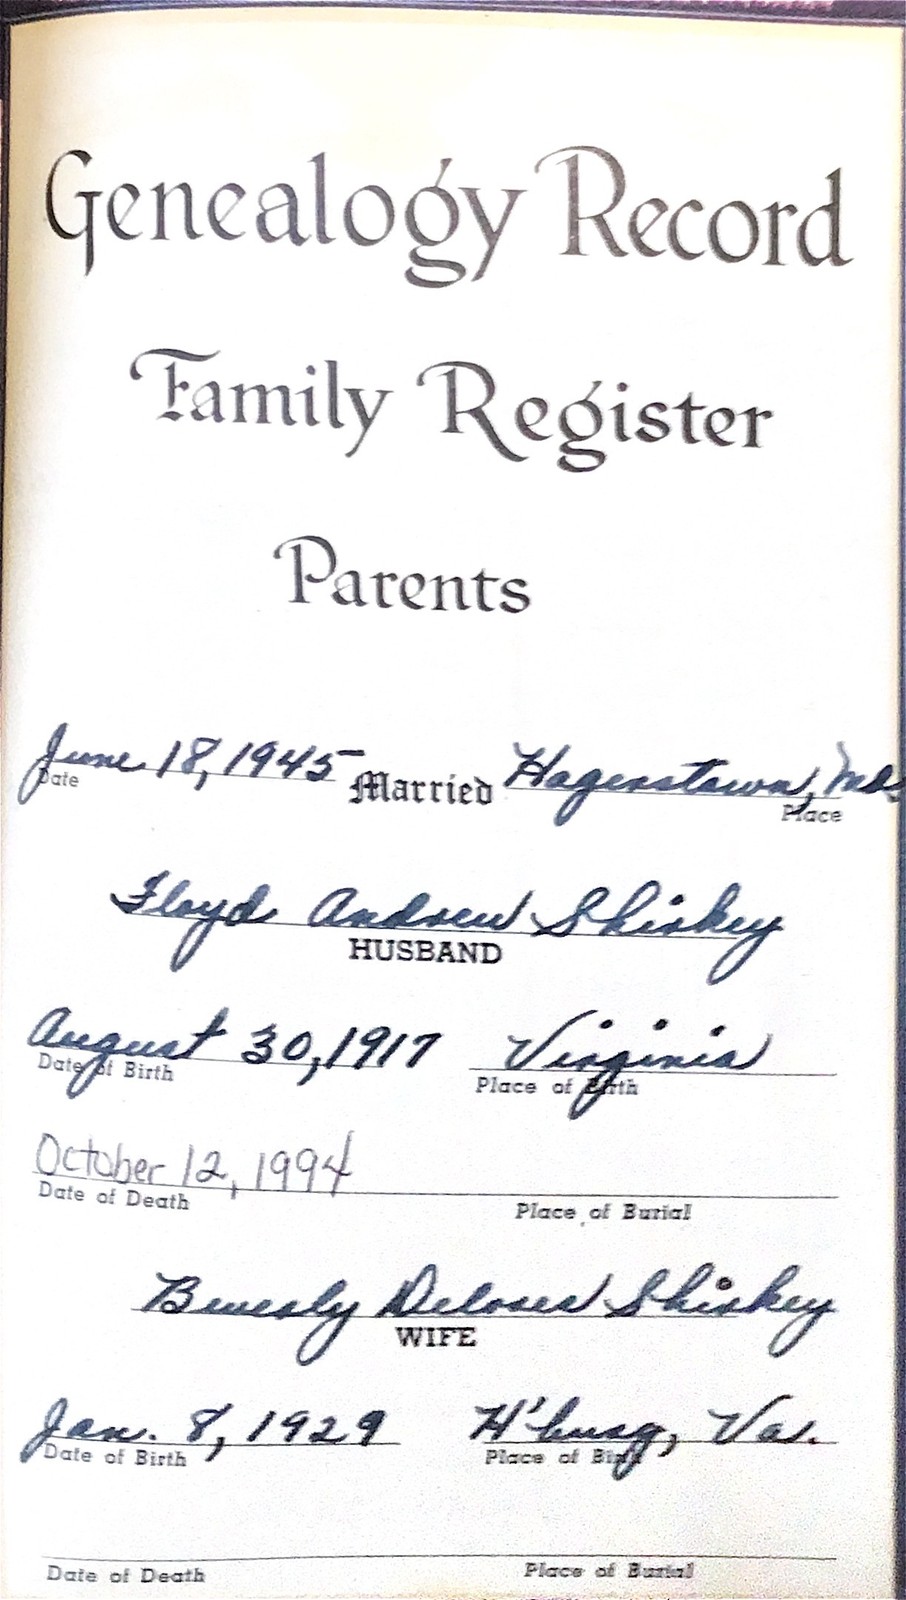 Genealogy Record
Family Register
Parents
June 18, 1945 Married Hagerstown, Md.
Date Place
Floyd Andrew Shiskey
HUSBAND
August 30, 1917 Virginia
Date of Birth Place of Birth
October 12, 1994
Date of Death Place of Burial
Beverly Delores Shiskey
WIFE
Jan. 8, 1929 H'burg, Va.
Date of Birth Place of Birth
Date of Death Place of Burial